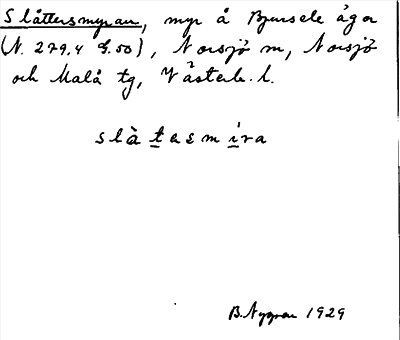 Slåttersmyran, myr å Bjursele ägor
(N. 279,4 g.50), Norsjö sn, Norsjö
och Malå tg, Västerb. l.
slàtesmíra
B. Nygren 1929